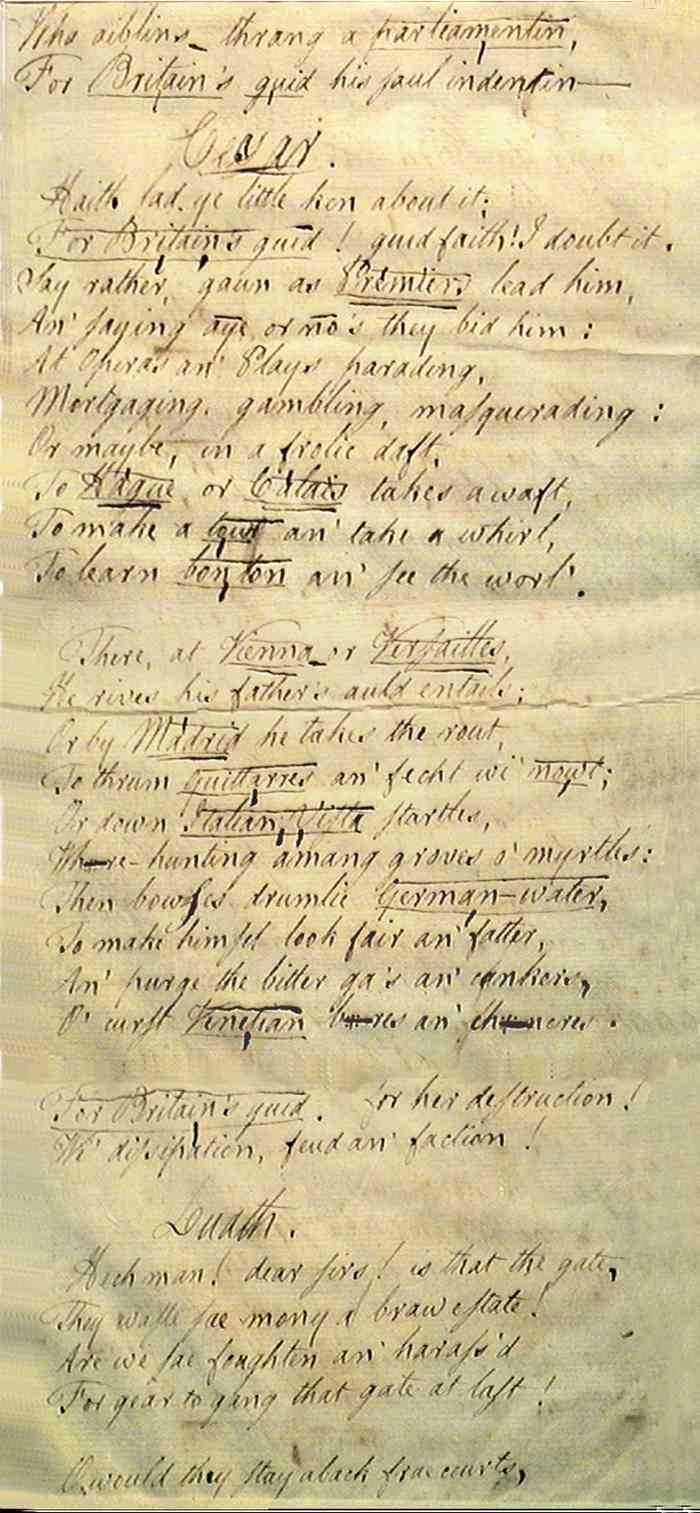 Wha aiblins_ thrang a parliamentin,
For Britain's guid his saul indentin—
Cesar.
Haith lad ye little ken about it;
For Britain's guid! guid faith! I doubt it.
Say rather, gaun as Premiers lead him,
An' saying aye or no's they bid him:
At Operas an' Plays parading,
Mortgaging, gambling, masquerading:
Or maybe, in a frolic daft,
To Hague or Calais takes a waft,
To make a tour an' take a whirl,
To learn bon ton an' see the worl'.
There, at Vienna or Versailles,
He rives his father's auld entails;
Or by Madrid he takes the rout,
To thrum guittarres an' fecht wi' nowt;
Or down Italian Vista startles,
Wh—re-hunting amang groves o' myrtles:
Then bowses drumlie German-water,
To make himsel look fair an' fatter,
An' purge the bitter ga's an' cankers,
O' curst Venetian b—res an' ch—ncres.
For Britain's guid. for her destruction!
Wi' dissipation, feud an' faction!
Luath.
Hech man! dear sirs! is that the gate,
They waste sae mony a braw estate!
Are we sae foughten an' harass'd
For gear to gang that gate at last!
O would they stay aback frae courts,